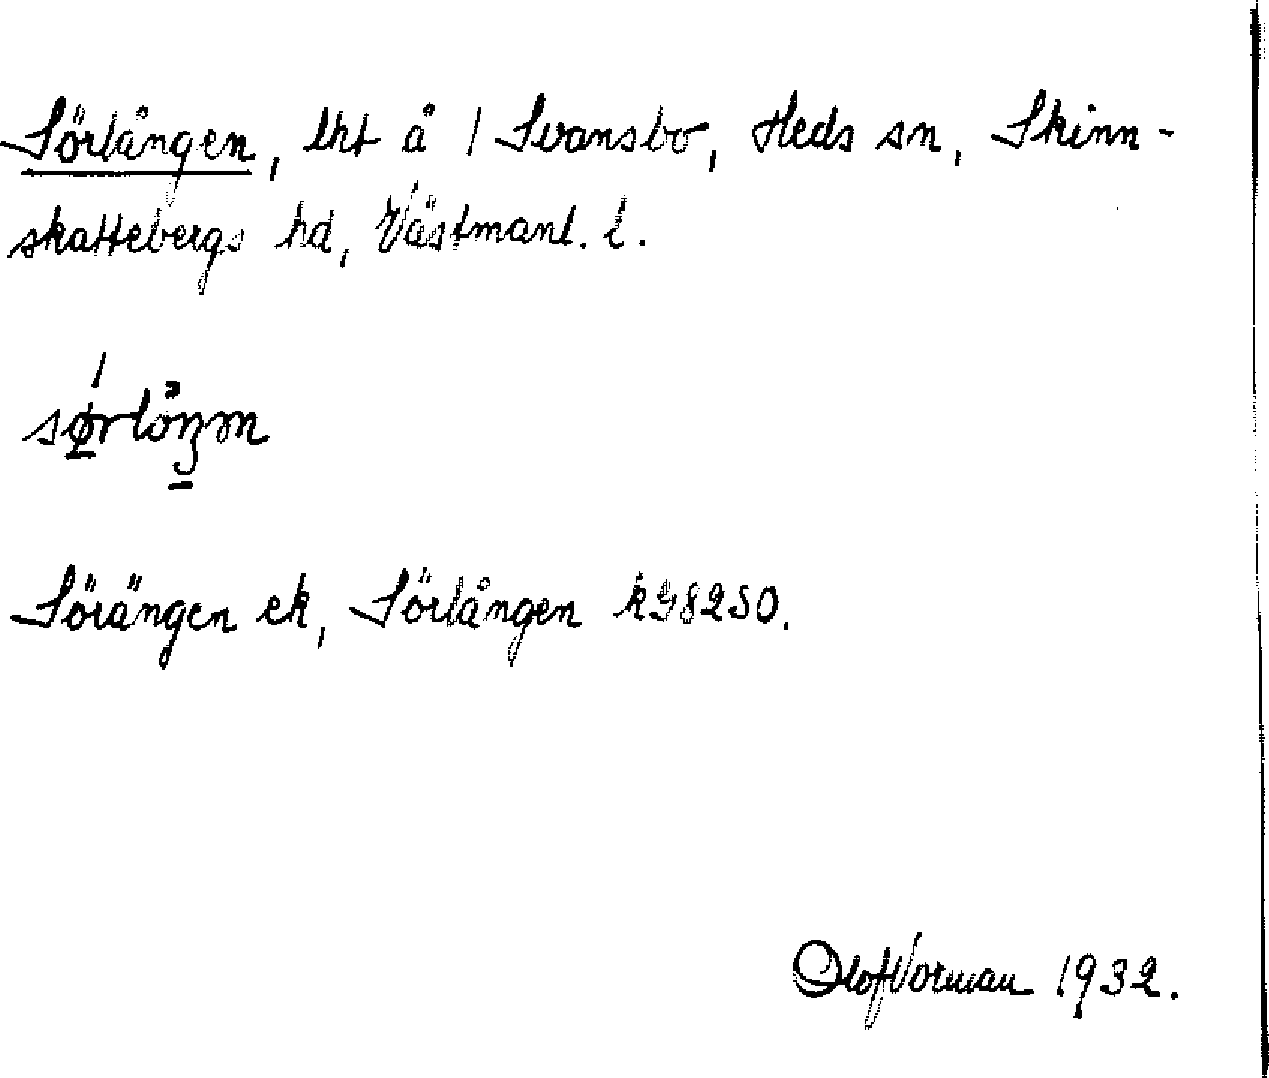 Sörlången, lht å 1 Svansbo, Heds sn, Skinn-
skattebergs hd, Västmanl. l.
Sörängen ek, Sörlången k98250.
Olof Vorman 1932.